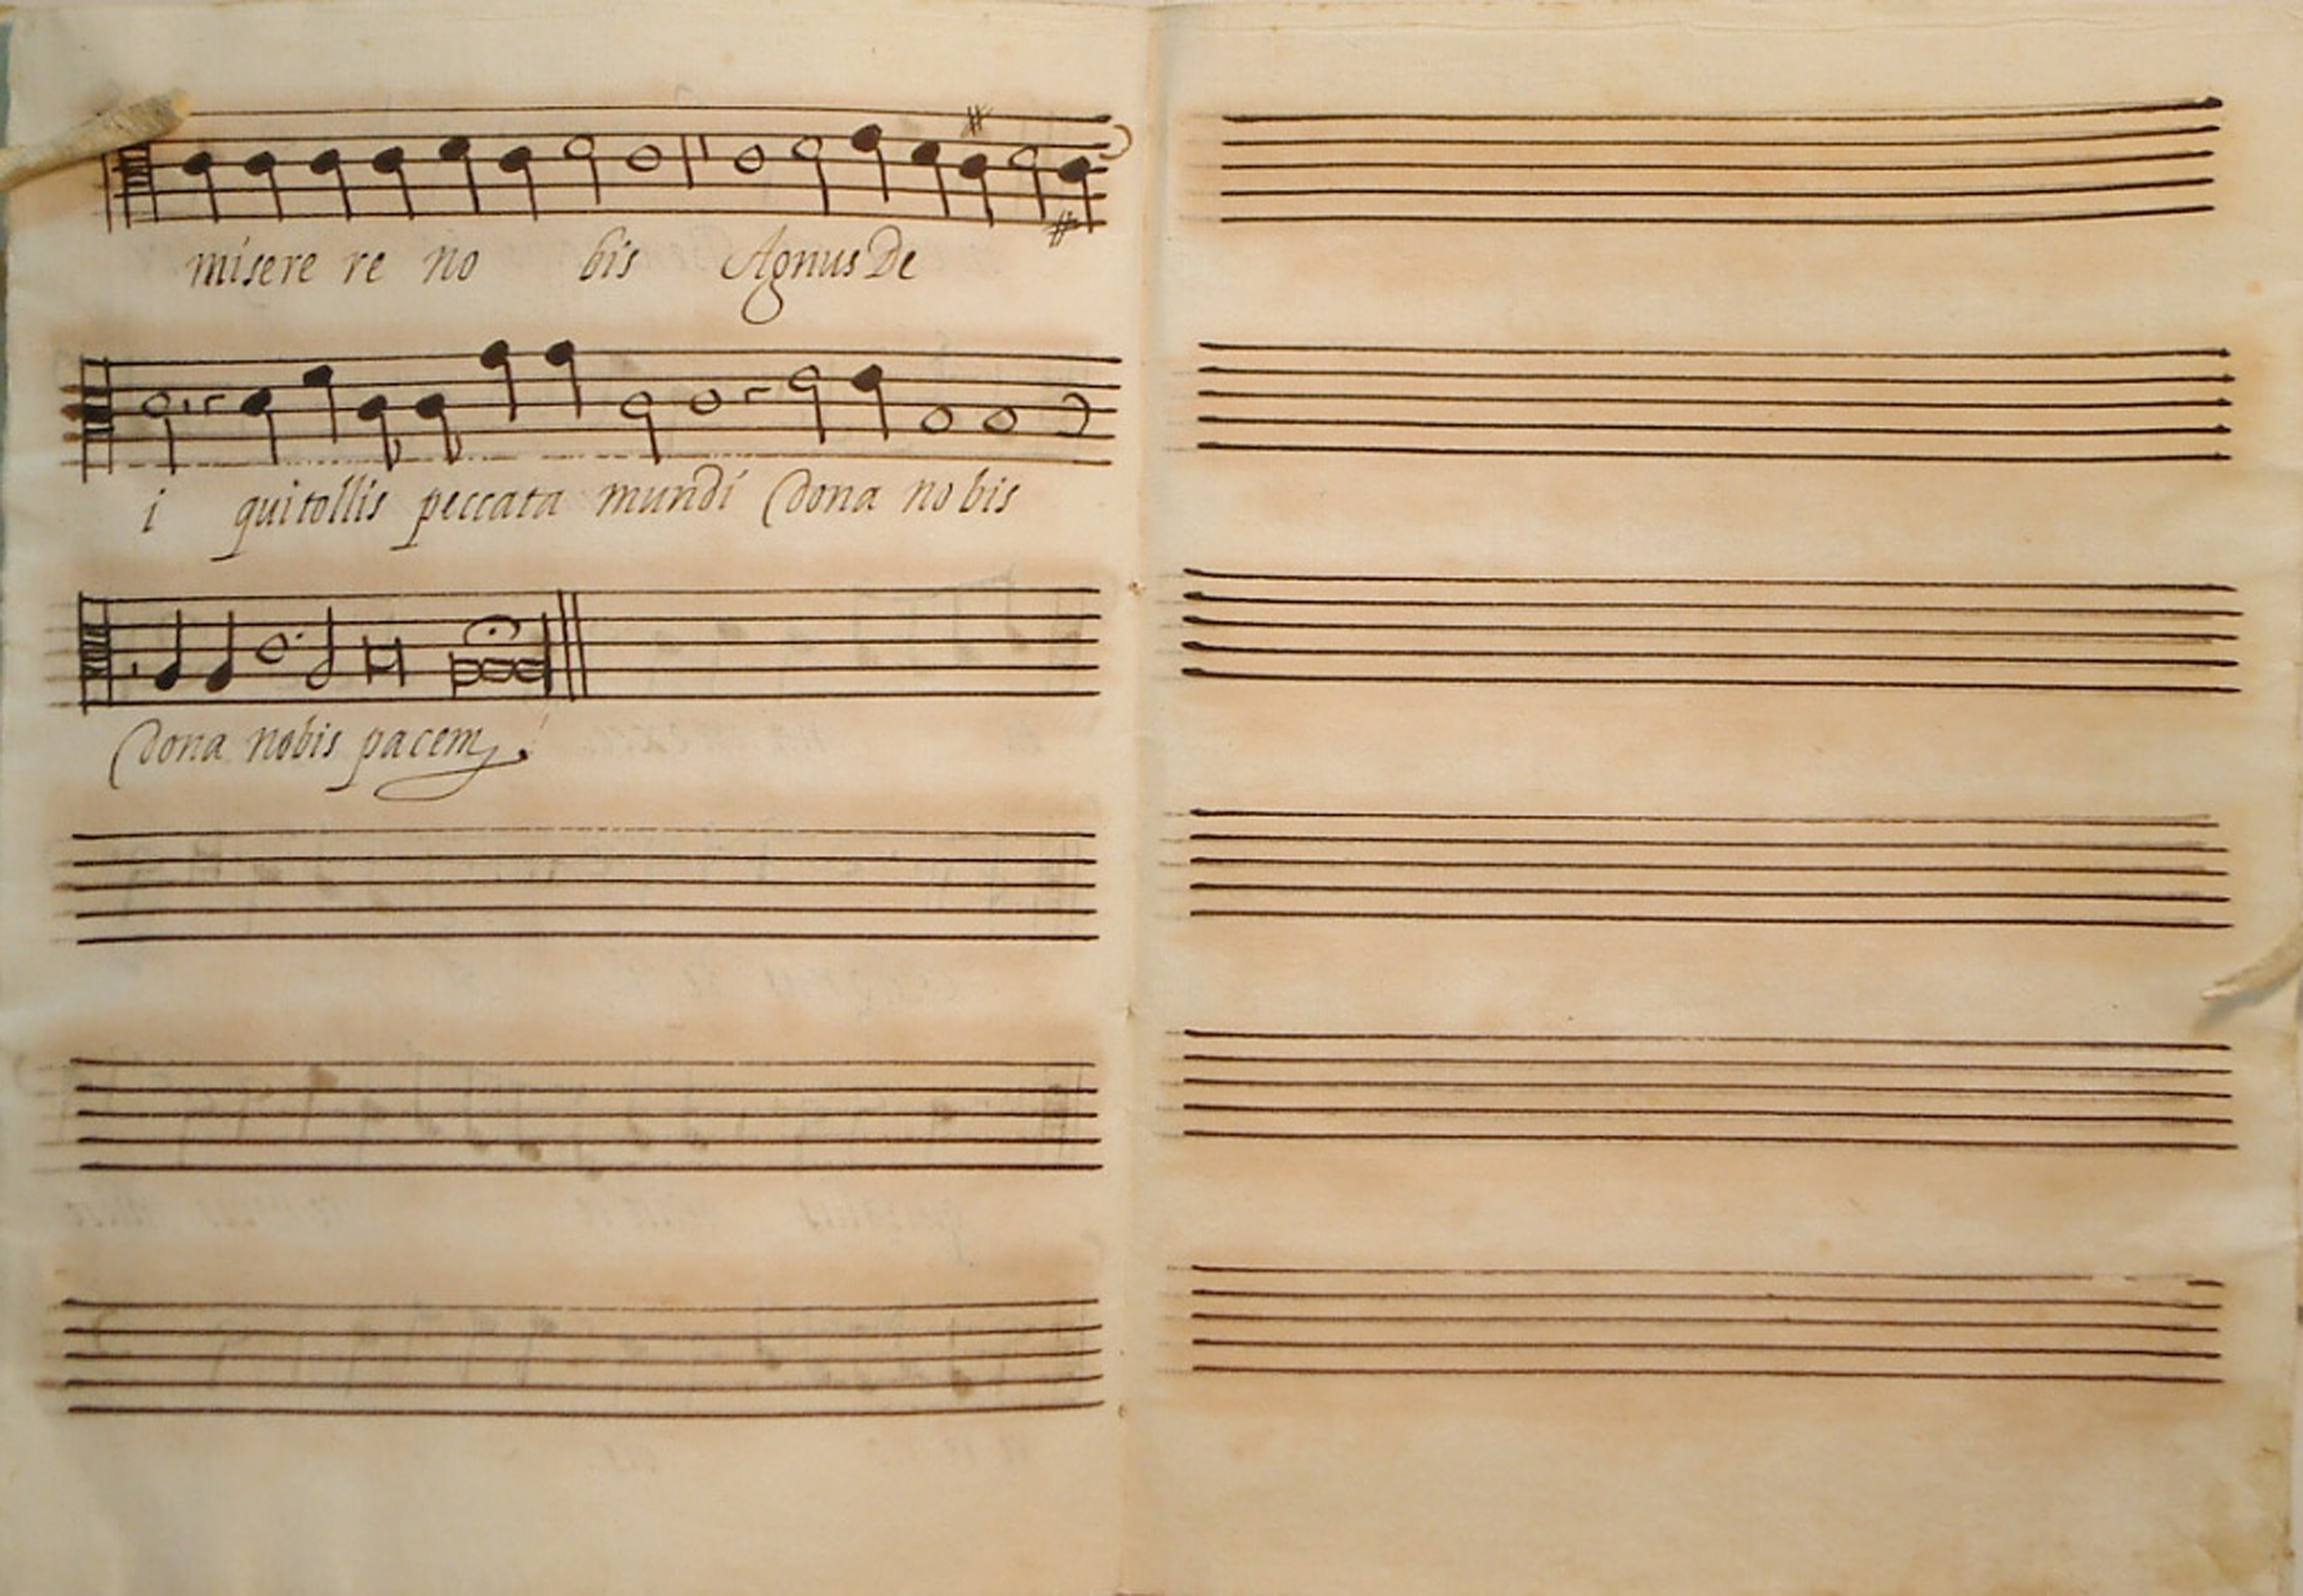 misere re no bis Agnus De
i qui tollis peccata mundi dona no bis
dona nobis pacem.